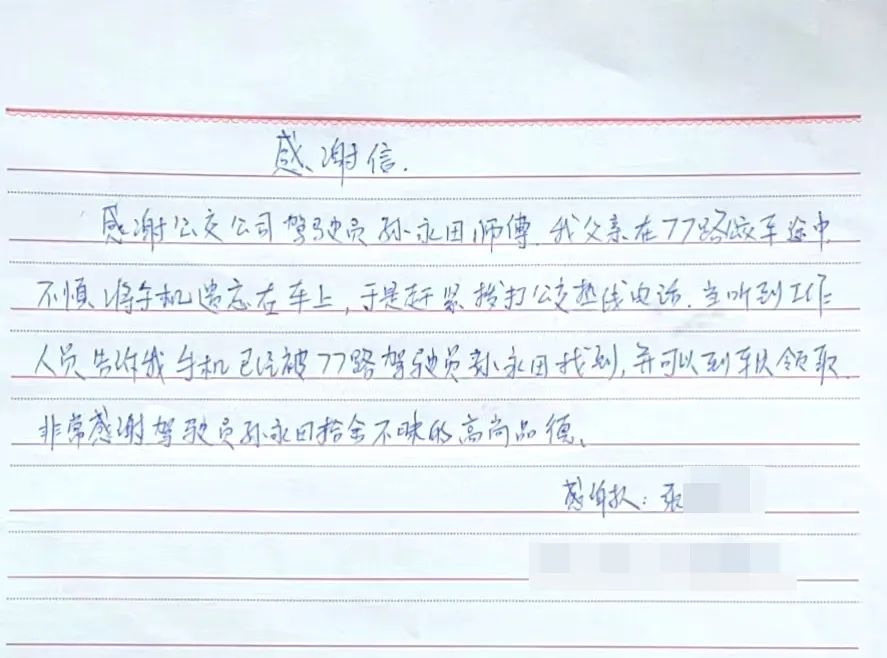 感谢信.
感谢公交公司驾驶员孙永田师傅.我父亲在77路公车途中
不慎将手机遗忘在车上,于是赶紧拨打公交热线电话.当听到工作
人员告诉我手机已经被77路驾驶员孙永田找到,并可以到车队领取.
非常感谢驾驶员孙永田拾金不昧的高尚品德、
感谢人:张